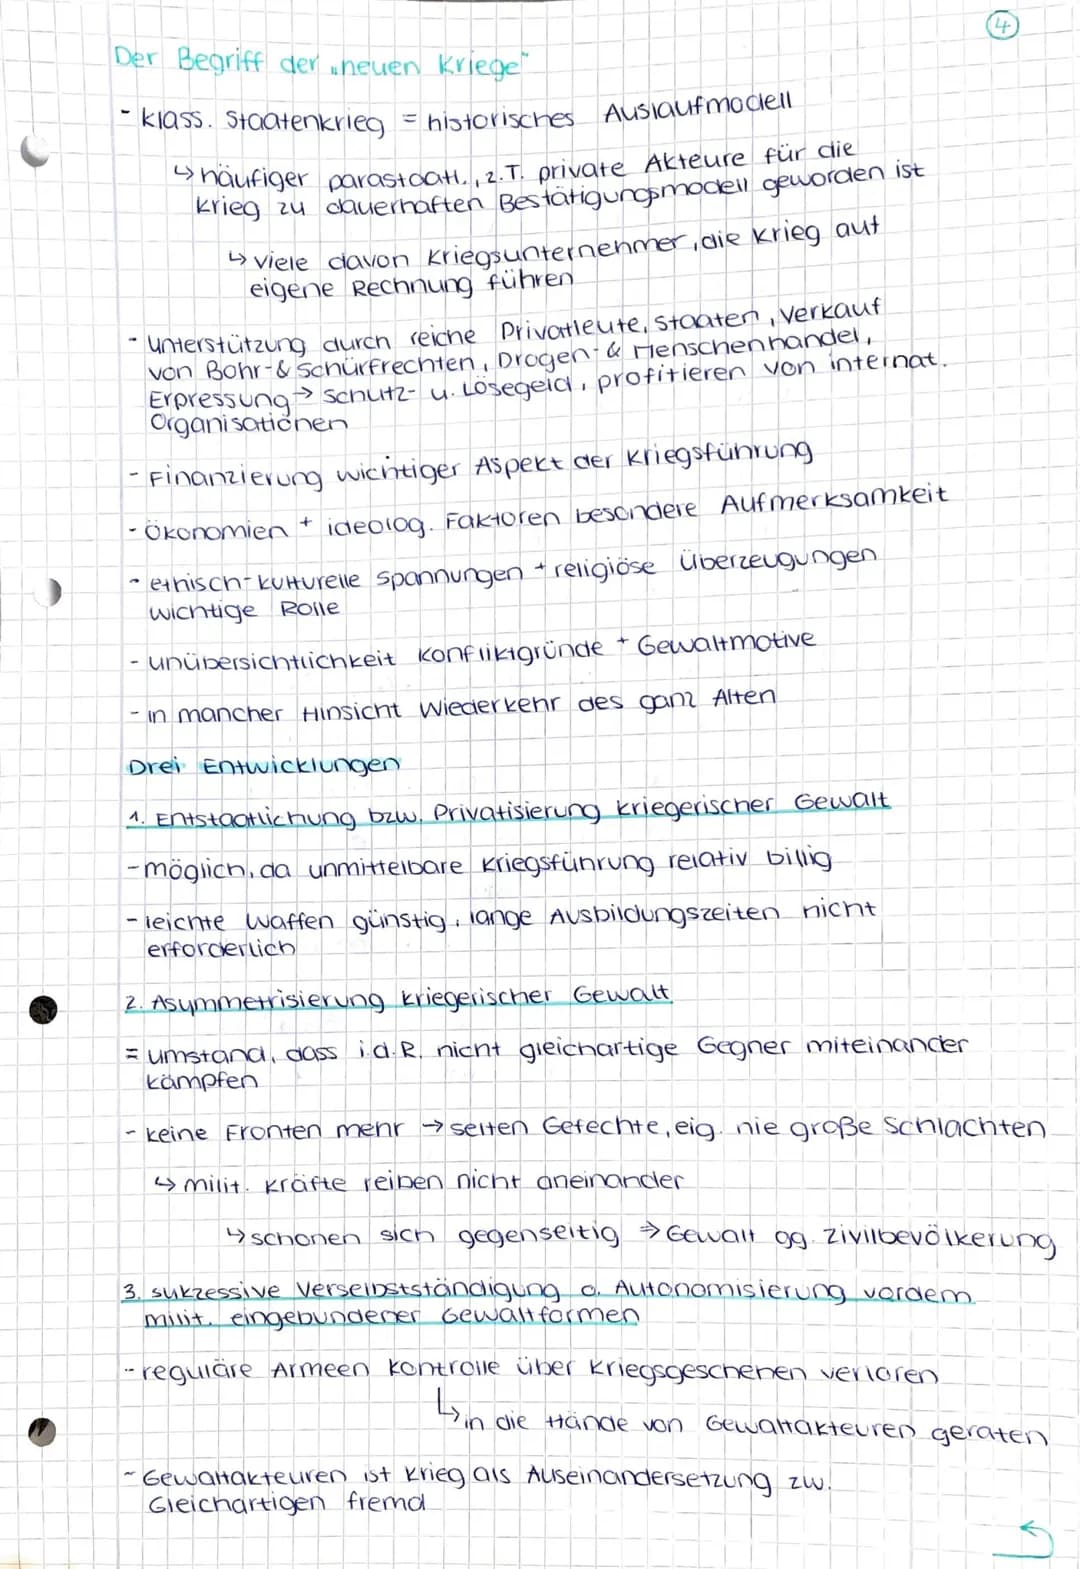 4
Der Begriff der „neuen Kriege"
- klass. Staatenkrieg = historisches Auslaufmodell
↳ häufiger parastaatl., z.T. private Akteure für die
Krieg zu dauerhaften Bestätigungsmodell geworden ist
↳ viele davon Kriegsunternehmer, die Krieg auf
eigene Rechnung führen
- Unterstützung durch reiche Privatleute, Staaten, Verkauf
von Bohr- & Schürfrechten, Drogen- & Menschenhandel,
Erpressung → Schutz- u. Lösegeld, profitieren von internat.
Organisationen
- Finanzierung wichtiger Aspekt der Kriegsführung
- Ökonomien + ideolog. Faktoren besondere Aufmerksamkeit
- ethisch-kulturelle Spannungen + religiöse Überzeugungen
wichtige Rolle
- Unübersichtlichkeit Konfliktgründe + Gewaltmotive
- in mancher Hinsicht Wiederkehr des ganz Alten
Drei Entwicklungen
1. Entstaatlichung bzw. Privatisierung kriegerischer Gewalt
- möglich, da unmittelbare Kriegsführung relativ billig
- leichte Waffen günstig, lange Ausbildungszeiten nicht
erforderlich
2. Asymmetrisierung kriegerischer Gewalt
= Umstand, dass i.d.R. nicht gleichartige Gegner miteinander
kämpfen
- keine Fronten mehr → selten Gefechte, eig. nie große Schlachten
↳ milit. Kräfte reiben nicht aneinander
↳ schonen sich gegenseitig ⇒ Gewalt gg. Zivilbevölkerung
3. sukzessive Verselbstständigung o. Autonomisierung vordem
milit. eingebundener Gewaltformen
- reguläre Armeen Kontrolle über Kriegsgeschehen verloren
↳ in die Hände von Gewaltakteuren geraten
- Gewaltakteuren ist Krieg als Auseinandersetzung zw.
Gleichartigen fremd